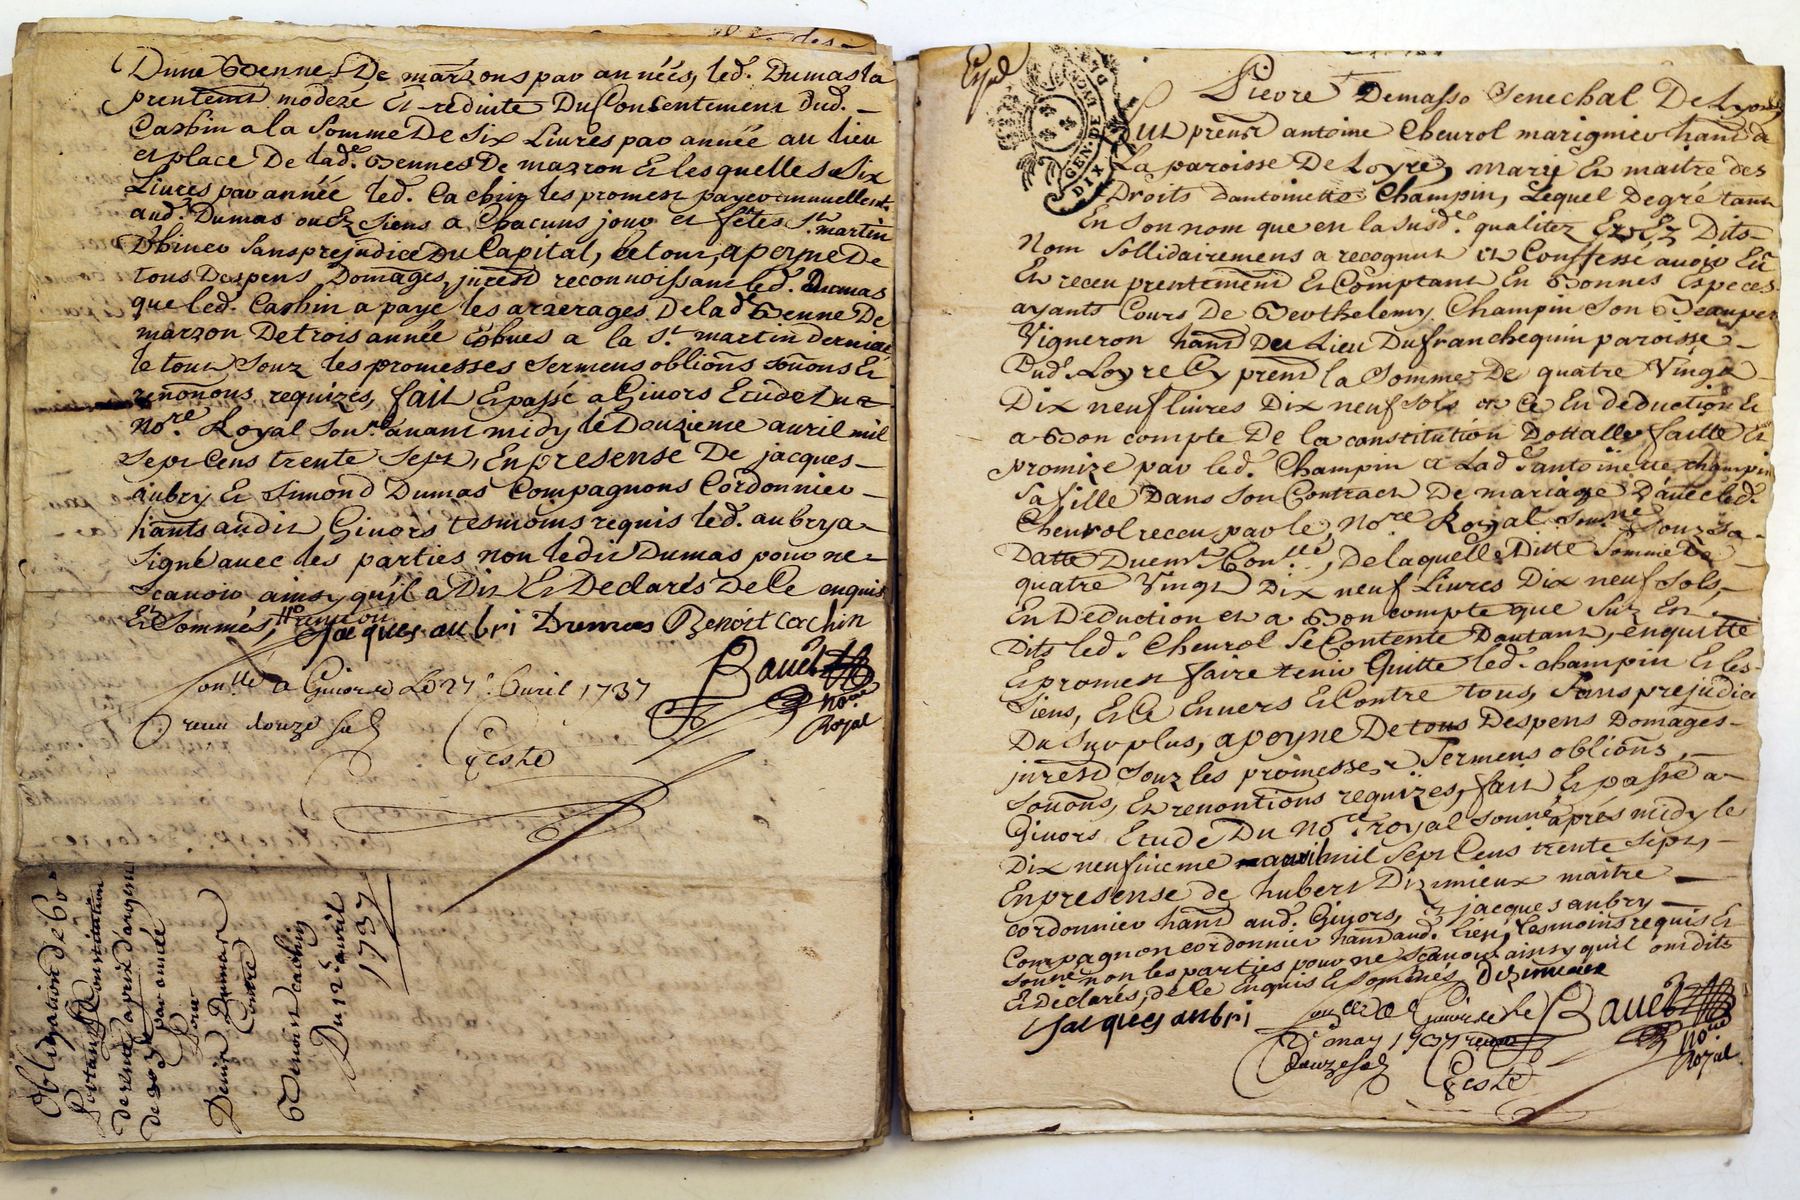 Dune Bennes De marzons par années, led. Dumas la
prentems modéré Et reduite Du Consentement dud.
Cachin a la Somme De Six Livres par année au lieu
et place De lad.e Bennes De marzon Et lesquelles Six
Livres par année led. Cachin les promest payer annuellem.t
aud. Dumas ou Ez Siens a Chacuns jour et fêtes S.t martin
D'hiver Sans prejudice Du Capital, le tout, a peyne De
tous Despens Domages, jurent reconnoissant led. Dumas
que led. Cachin a payé les arzerages De lad. Benne De
marzon De trois année Echues a la S.t martin dernier
le tout Souz les promesses Sermens oblions Soûons Et
renonons requizes, fait Et passé a Givors Etude Du
No.re Royal Sou.né avant midy le Douzieme avril mil
Sept Cens trente Sept, En presense De jacques
aubry Et Simond Dumas Compagnons Cordonnier
hants audit Givors tesmoins requis led. aubry a
Signé avec les parties non ledit Dumas pour ne
Scavoir ainsy qu'il a Dit Et Declarés De Ce enquis
Et Sommés,
Jacques aubri Dumas Benoit cachin
Bauet
no.re
Royal
Con.llé a Givors Le 27.e Avril 1737
receu douze sol
Geste
Obligation de 60
Portant Constitution
de rente a prix d'argent
de 3 par année
Pour
Denis Dumas
Contre
Benoit cachin
Du 12.e avril
1737
Expd
GEN. DE LION
DIX DEN.
Pierre Demasso Senechal De Lyon
fut present antoine Cheurol marignier hant a
La paroisse De Loyre, marié Et maitre des
Droits d'antoinette Champin, Lequel De gré tant
En Son nom que en la Susd.e qualitez Et Ez Dits
Nom Sollidairemens a recognut et Confessé avoir Eu
Et receu prentement Et Comptant En Bonnes Especes
ayants Cours De Berthelemy Champin Son Beauper
Vigneron hant Du Lieu Du franchequin paroisse
Dud. Loyre Cy present la Somme De quatre Vingt
Dix neuf livres Dix neuf Sols et Ce En deduction Et
a Bon compte De la constitution Dottalle faitte Et
promize par led. Champin a Lad. antoinette champin
Sa fille Dans Son Contract De mariage D'avec led.
Cheurol receu par le, No.re Royal Sou.né Souz Sa
Datte Duem.t Con.llé, De laquelle Ditte Somme De
quatre Vingt Dix neuf Livres Dix neuf Sols,
En Deduction et a Bon compte que Suz Et
Dits led. Cheurol Se Contente Dautant, en quitte
Et promet faire tenir Quitte led. champin Et les
Siens, Et Ce Envers Et Contre tous, Sans prejudice
Du Surplus, a peyne De tous Despens Domages
jurent Souz les promesses Sermens oblions,
Soûons, Et renontions requizes, fait Et passé a
Givors Etude Du No.re royal Souné après midy le
Dix neufvieme avril mil Sept Cens trente Sept,
En presense de hubert Dizimieux maitre
cordonnier hant aud. Givors, Et jacques aubry
Compagnon cordonnier hant aud. lieu, tesmoins requis Et
Souné non les parties pour ne Scavoir ainsy qu'il ont dits
Et declarés, de Ce Enquis Et Sommés Dizimieux
Jacques aubri
Con.llé a Givors le
2.e may 1737 receu
douze sol
Geste
Bauet
No.re
Royal